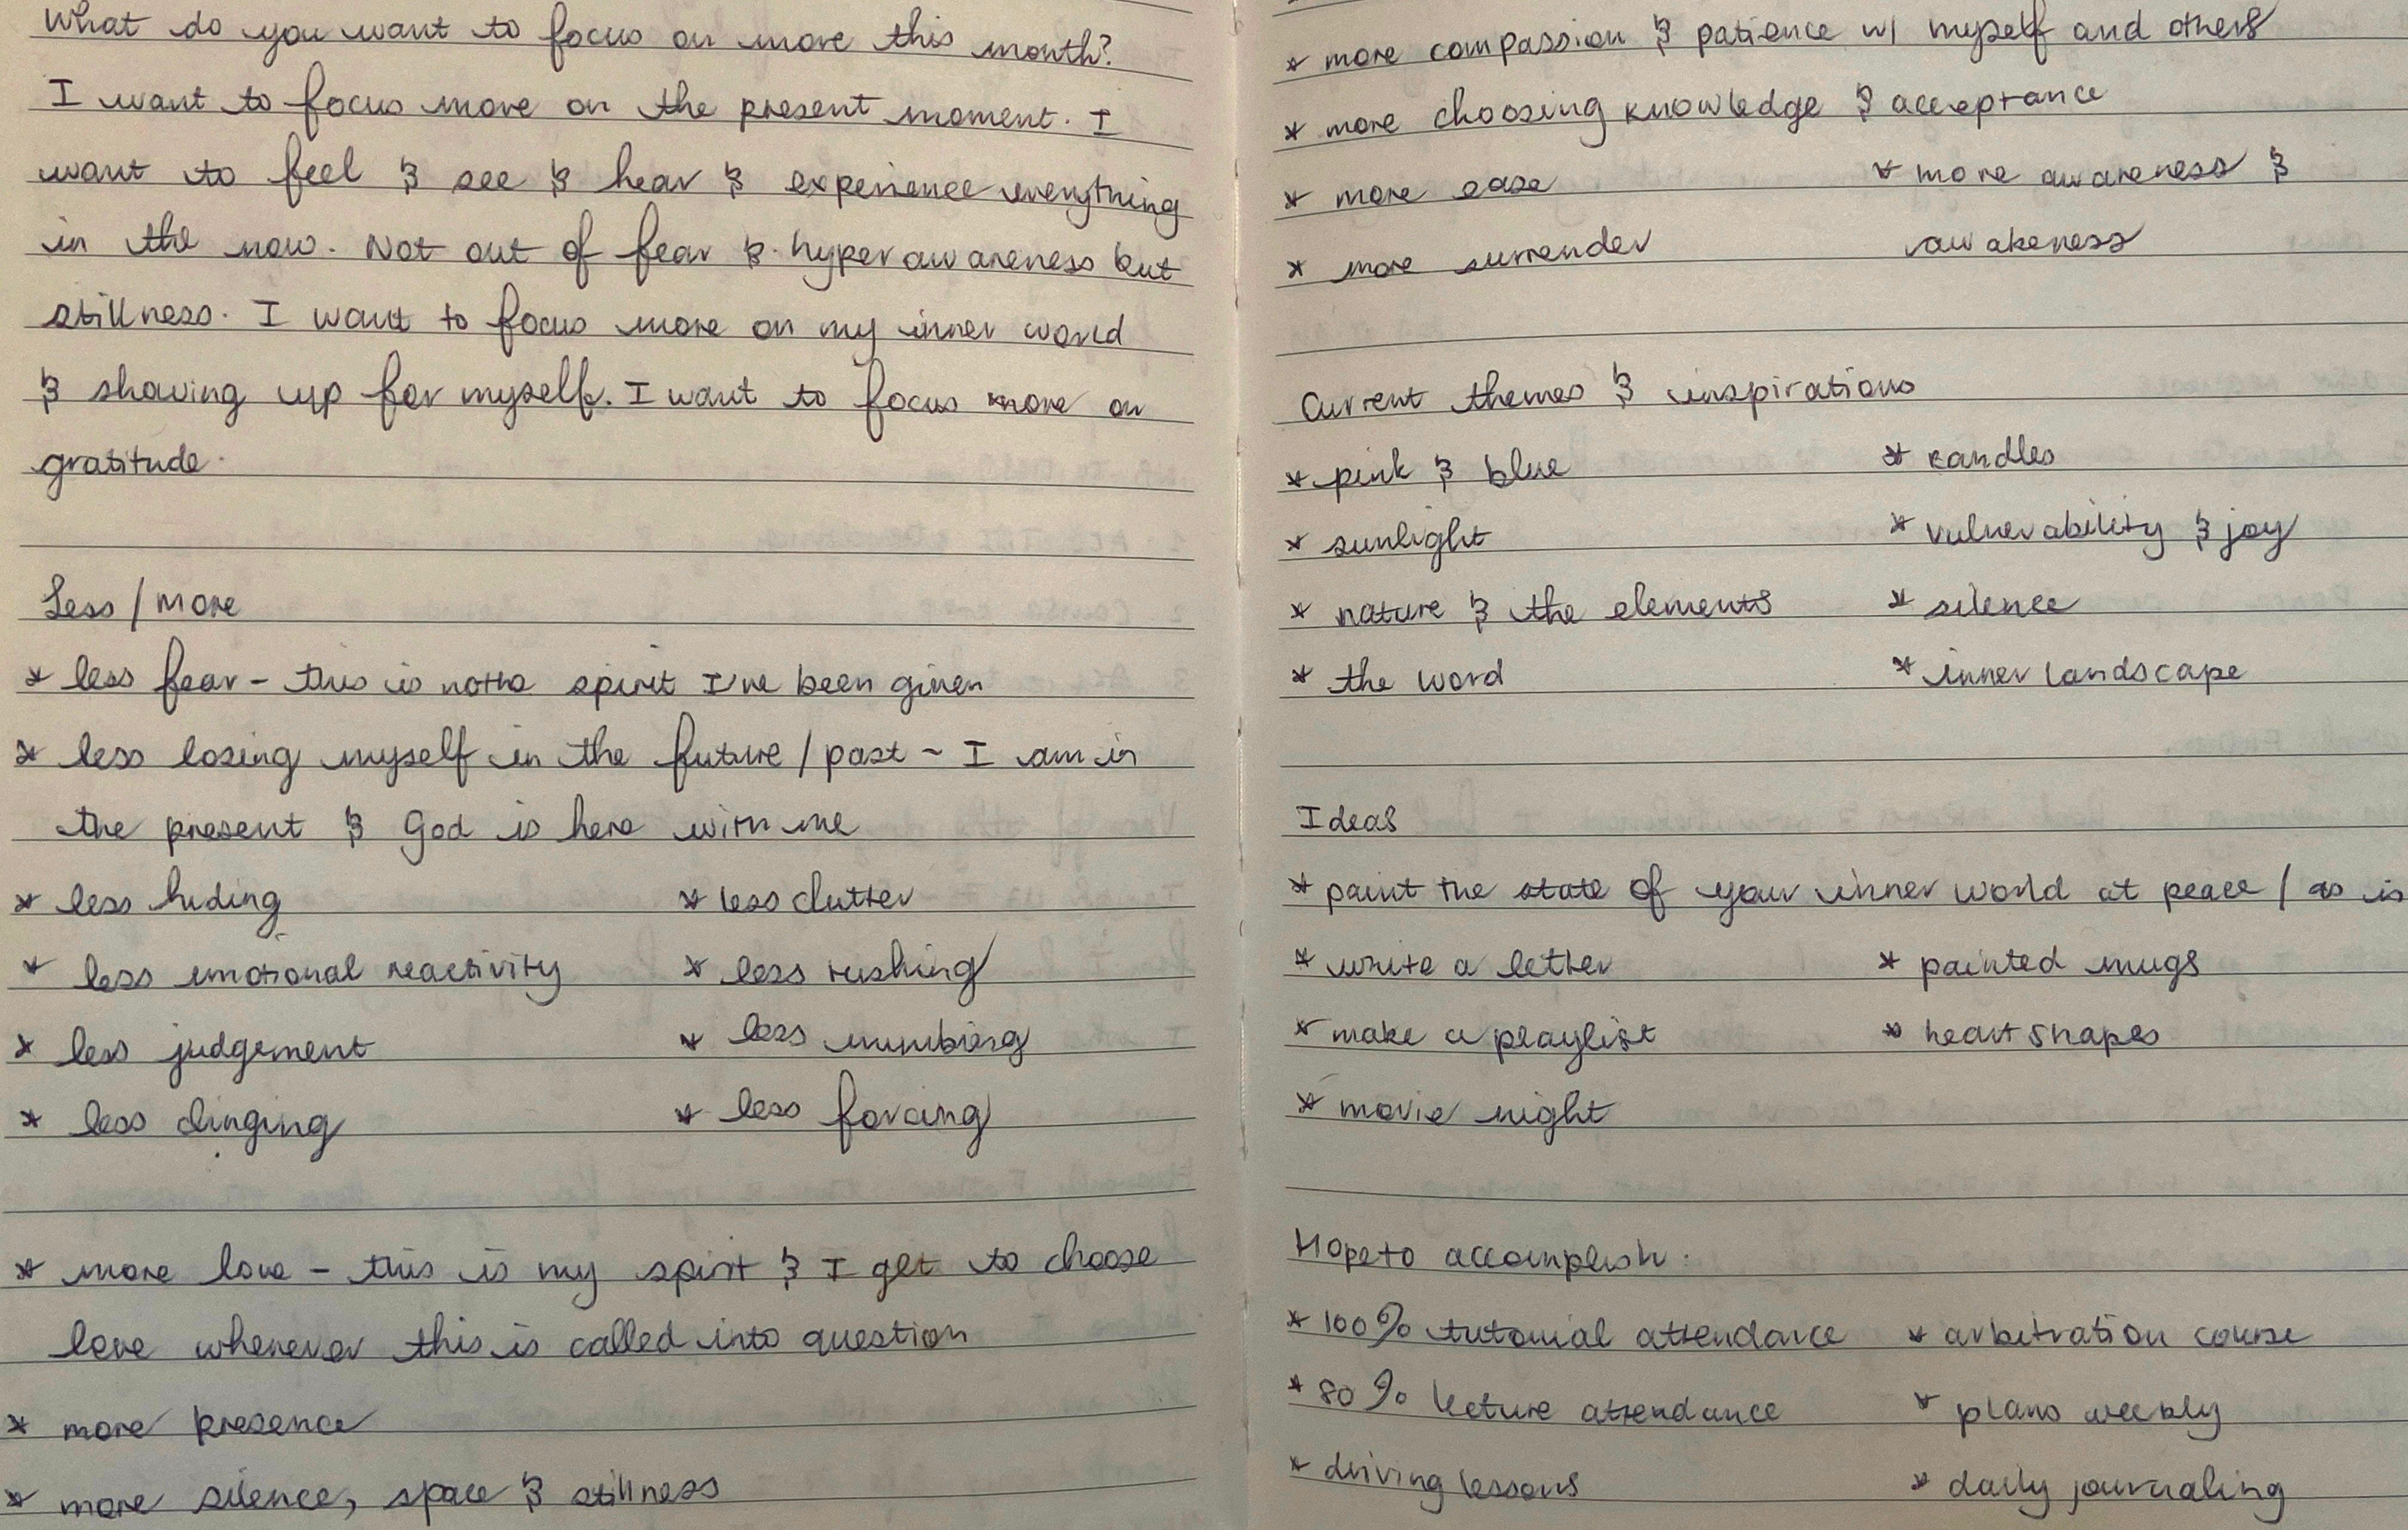 What do you want to focus on more this month?
I want to focus more on the present moment. I
want to feel & see & hear & experience everything
in the now. Not out of fear & hyperawareness but
stillness. I want to focus more on my inner world
& showing up for myself. I want to focus more on
gratitude.
Less / more
* less fear - this is not the spirit I've been given
* less losing myself in the future / past ~ I am in
the present & God is here with me
* less hiding * less clutter
* less emotional reactivity * less rushing
* less judgement * less numbing
* less clinging * less forcing
* more love - this is my spirit & I get to choose
love whenever this is called into question
* more presence
* more silence, space & stillness
* more compassion & patience w/ myself and others
* more choosing knowledge & acceptance
* more ease * more awareness &
* more surrender awakeness
Current themes & inspirations
* pink & blue * candles
* sunlight * vulnerability & joy
* nature & the elements * silence
* the word * inner landscape
Ideas
* paint the state of your inner world at peace / as is
* write a letter * painted mugs
* make a playlist * heart shapes
* movie night
Hope to accomplish.
* 100% tutorial attendance * arbitration course
* 80% lecture attendance * plans weekly
* driving lessons * daily journaling